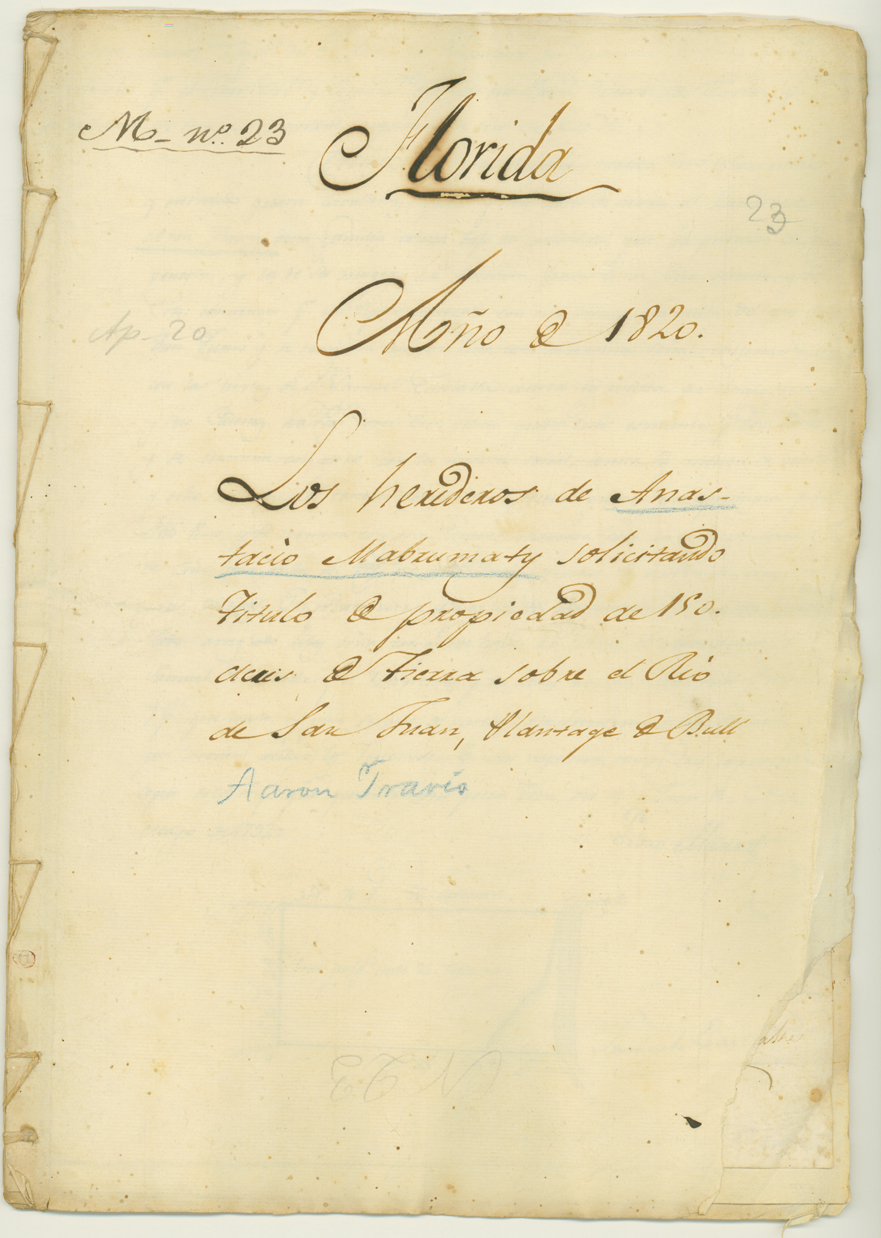 M- nº. 23
Florida
23
Año de 1820.
Ap. 20
Los herederos de Anas-
tacio Mabrumaty solicitando
titulo de propiedad de 150.
acres de tierra sobre el Rio
de San Juan, Plantage de Bull
Aaron Travis